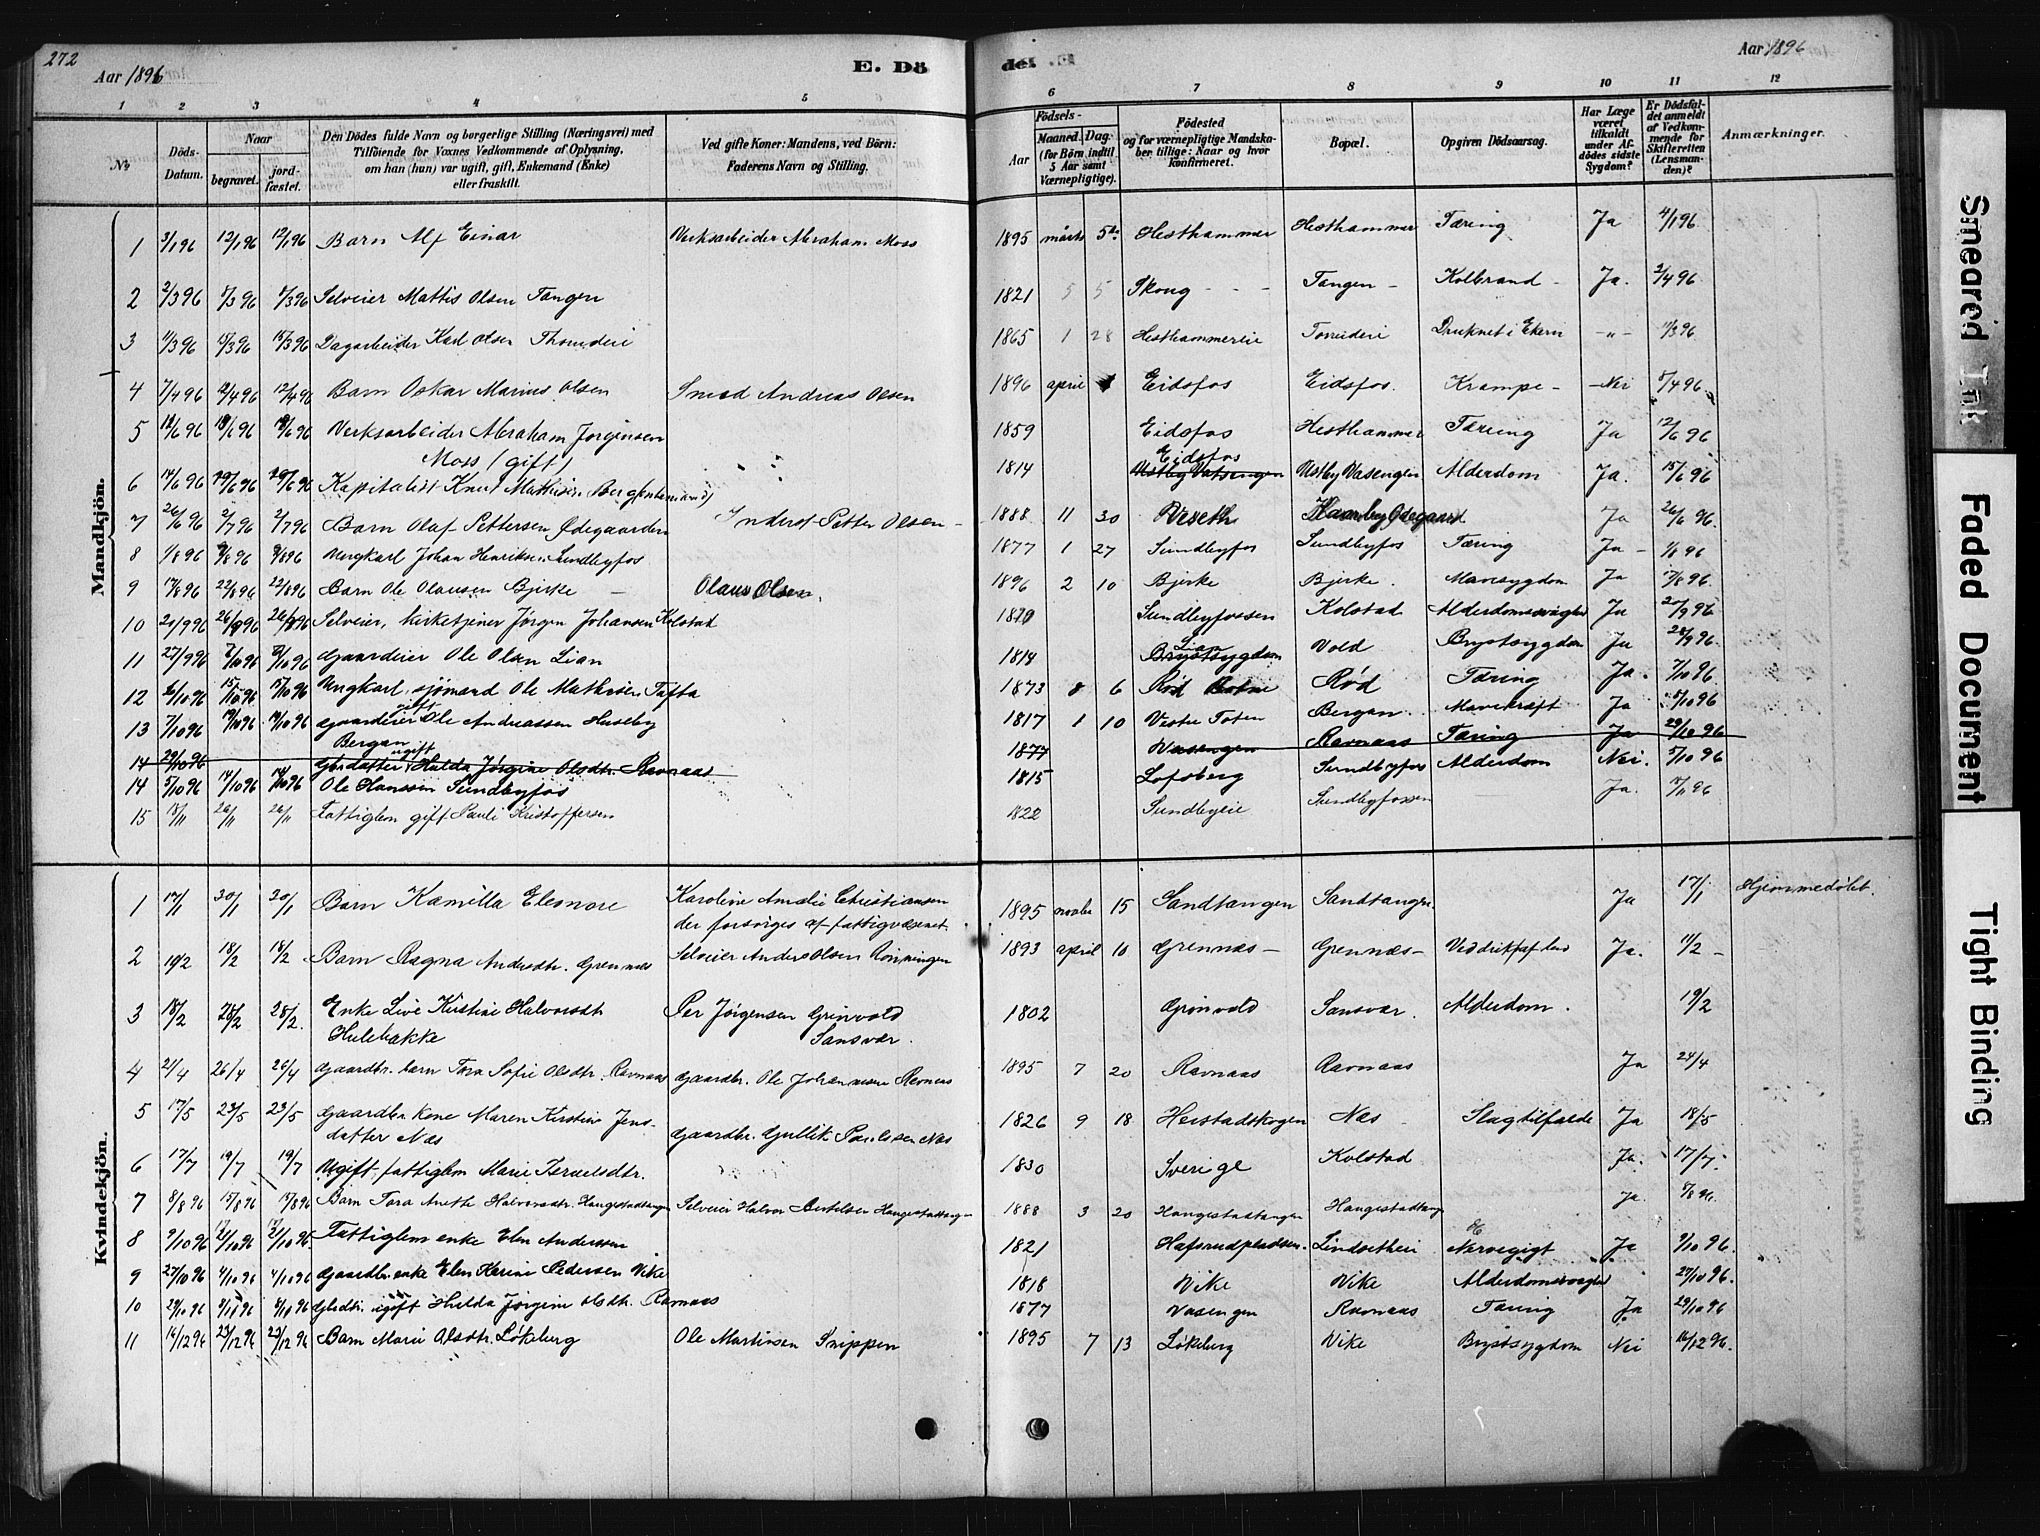 272
Aar 1896
E. Dö
de. E.
Aar 1896
1 2 3 4 5 6 7 8 9 10 11 12
No
Döds-Datum.
Naar
begravet.
jord-fæstet.
Den Dödes fulde Navn og borgerlige Stilling (Næringsvei) med
Tilföiende for Voxnes Vedkommende af Oplysning,
om han (hun) var ugift, gift, Enkemand (Enke)
eller fraskilt.
Ved gifte Koner: Mandens, ved Börn:
Faderens Navn og Stilling.
Födsels-
Aar
Maaned. Dag.
(for Börn indtil 5 Aar samt Værnepligtige).
Födested
og for værnepligtige Mandska-
ber tillige: Naar og hvor
konfirmeret.
Bopæl.
Opgiven Dödsaarsag.
Har Læge været tilkaldt under Af-dödes sidste Sygdom?
Er Dödsfal-det anmeldt af Vedkom-mende for Skifteretten (Lensman-den)?
Anmærkninger.
Mandkjön.
1 3/1 96 12/1 96 12/1 96 Barn Alf Einar Verksarbeider Abraham Moss 1895 marts 5te Hesthammer Hesthammer Tæring Ja 4/1 96
2 2/3 96 8/3 96 8/3 96 Selveier Mattis Olsen Tangen 1821 5 5 Skoug Tangen Kolbrand Ja. 2/4 96
3 11/3 96 15/3 96 15/3 96 Dagarbeider Karl Olsen Thoruderi 1865 1 28 Hesthammereie Toruderi Druknet i Ekern -"- 11/3 96
4 7/4 96 12/4 96 12/4 96 Barn Oskar Marius Olsen Smed Andreas Olsen 1896 april Eidsfos Eidsfos. Krampe Nei 8/4 96
5 12/6 96 18/6 96 18/6 96 Verksarbeider Abraham Jørgensen 1859 Eidsfos Hesthammer Tæring Ja 12/6 96
Moss (gift)
6 14/6 96 20/6 96 20/6 96 Kapitalist Knut Mathisen Berg (enkemand) 1814 Eidsfos Vestby Vatsengen Vestby Vasengen Alderdom Ja. 15/6 96
7 26/6 96 2/7 96 2/7 96 Barn Olaf Pettersen Ødegaarden Inderst Petter Olsen 1888 11 30 Beseth Haanby Ødegaard Ja 26/6 96.
8 1/8 96 9/8 96 9/8 96 Ungkarl Johan Henriksen Sundbyfos 1877 1 27 Sundbyfos Sundbyfos Tæring Ja 1/8 96
9 17/8 96 22/8 96 22/8 96 Barn Ole Olausen Bjerke Olaus Olsen. 1896 2 10 Bjerke Bjerke. Mavesygdom Ja 17/8 96.
10 20/9 96 26/9 96 26/9 96 Selveier, kirketjener Jørgen Johansen Kolstad 1810 Sundbyfossen Kolstad Ja 20/9 96
11 27/9 96 4/10 96 4/10 96 Gaardeier Ole Olsen Lian 1814 Lian Brystsygdom Vold Brystsygdom Ja 28/9 96.
12 6/10 96 15/10 96 15/10 96 Ungkarl, sjømand Ole Mathisen Tufta 1873 8 6 Rød Rød Tæring Ja. 7/10 96
13 7/10 96 14/10 96 14/10 96 Gaardeier gift Ole Andreassen Huseby 1817 1 10 Vestre Toten Bergan. Mavekræft Ja 8/10 96
Bergan
14 29/10 96 Gbr.datter ugift Hulda Jørgine Olsdtr. Ravnaas 1877 Vasengen Ravnaas Tæring Ja 29/10 96
14 5/10 96 14/10 96 14/10 96 Ole Hanssen Sundbyfos 1815 Lofsberg Sundbyfos Alderdom Nei. 5/10 96
15 18/11 26/11 26/11 Fattiglem gift Pauli Kristoffersen 1822 Sundbyeie Sundbyfossen Ja. 96
Kvindekjön.
1 17/1 30/1 30/1 Barn Kamilla Eleonore Karoline Amalie Christiansen 1895 november 15 Sandtangen Sandtangen Ja 17/1 Hjemmedøbt.
der forsørges af fattigvæsenet
2 10/2 18/2 18/2 Barn Ragna Andersdtr. Grennæs Selveier Anders Olsen Rønningen 1893 april 10 Grennæs Grennæs Ja. 11/2
3 18/2 28/2 28/2 Enke Live Kirstine Halvorsdtr Per Jørgensen Grinvold 1802 Grønvold Sansvær. Alderdom. 19/2
Hulebakke Sansvær.
4 21/4 26/4 26/4 Gaardbr. barn Tora Sofie Olsdtr. Ravnaas Gaardbr. Ole Johannesen Ravnaas 1895 7 20 Ravnaas Ravnaas Ja 24/4
5 17/5 23/5 23/5 Gaardbr. kone Maren Kirstine Jens- 1826 9 18 Heistadskogen Næs Slagtilfælde Ja 18/5
datter Næs Gaardbr. Gullik Paulssen Næs
6 17/7 19/7 19/7 Ugift fattiglem Marie Israelsdtr. 1830 Sverige Kolstad Ja. 17/7.
7 8/8 96 15/8 96 15/8 96 Barn Tora Anette Halvorsdtr. Haugestadtangen Selveier Halvor Bertelsen Haugestadtangen 1888 3 20 Haugestadtangen Haugestadtang Ja. 8/8 96.
8 9/10 96 17/10 96 17/10 96. Fattiglem enke Elen Andersen 1821 Hafsrudpladsen. Lindsetheie Nervegigt Ja 9/10 96.
9 27/10 96 4/10 96 4/10 96 Gaardbr. enke Elen Karine Pedersen Vike 1818 Vike Vike 27/10 96.
10 29/10 96 8/11 96 8/10 96 Gbrdtr. ugift Hulda Jørgine Olsdtr. Ravnaas 1877 Vasengen Ravnaas Tæring Ja 29/10 96
11 14/12 96 23/12 96 23/12 96 Barn Marie Olsdtr. Løkeberg Ole Martinsen Snippen 1895 7 13 Løkeberg Vike Brystsygdom Nei 16/12 96.
Smeared Ink
Faded Document
Tight Binding